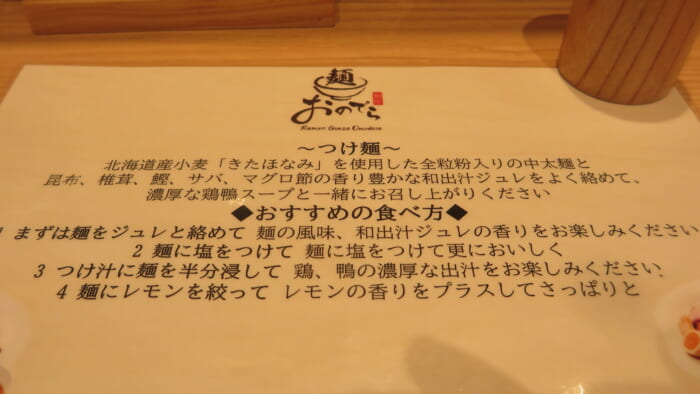 麺
おのでら
Ramen Ginza Onodera
～つけ麺～
北海道産小麦「きたほなみ」を使用した全粒粉入りの中太麺と
昆布、椎茸、鰹、サバ、マグロ節の香り豊かな和出汁ジュレをよく絡めて、
濃厚な鶏鴨スープと一緒にお召し上がりください
◆おすすめの食べ方◆
1 まずは麺をジュレと絡めて 麺の風味、和出汁ジュレの香りをお楽しみください
2 麺に塩をつけて 麺に塩をつけて更においしく
3 つけ汁に麺を半分浸して 鶏、鴨の濃厚な出汁をお楽しみください
4 麺にレモンを絞って レモンの香りをプラスしてさっぱりと